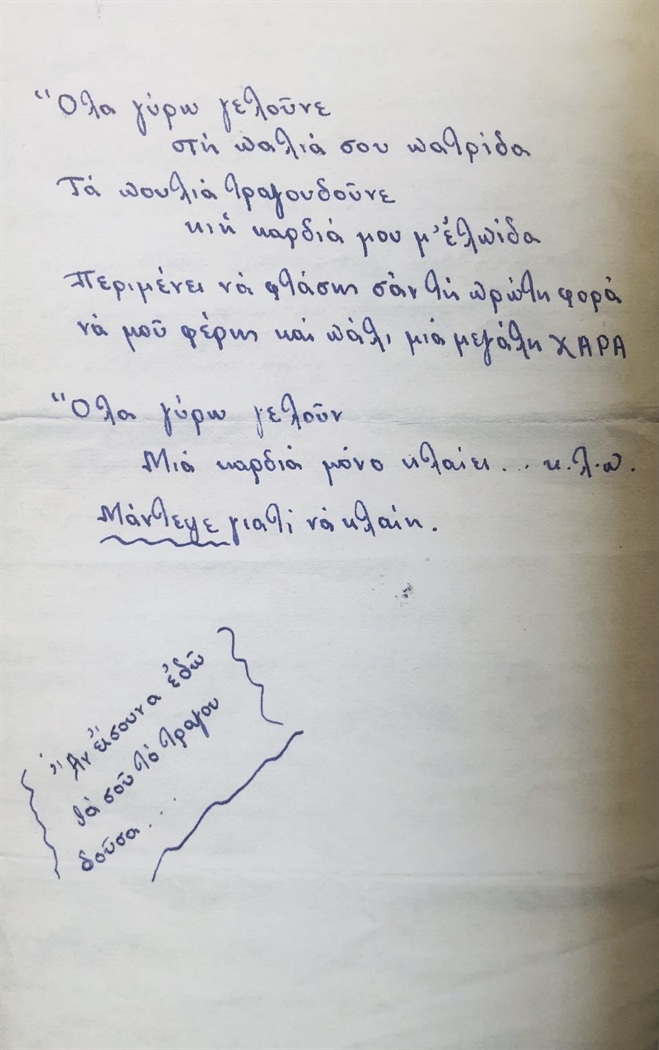 Ὅλα γύρω γελοῦνε
στή παλιά σου πατρίδα
Τά πουλιά τραγουδοῦνε
κι ἡ καρδιά μου μ' ἐλπίδα
Περιμένει νά φτάσης σάν τή πρώτη φορά
νά μοῦ φέρης καί πάλι μιά μεγάλη ΧΑΡΑ
Ὅλα γύρω γελοῦν
Μιά καρδιά μόνο κλαίει... κ.λ.π.
Μάντεψε γιατί νά κλαίη.
Ἄν εἴσουνα ἐδῶ
θά σοῦ τό τραγου
δοῦσα...